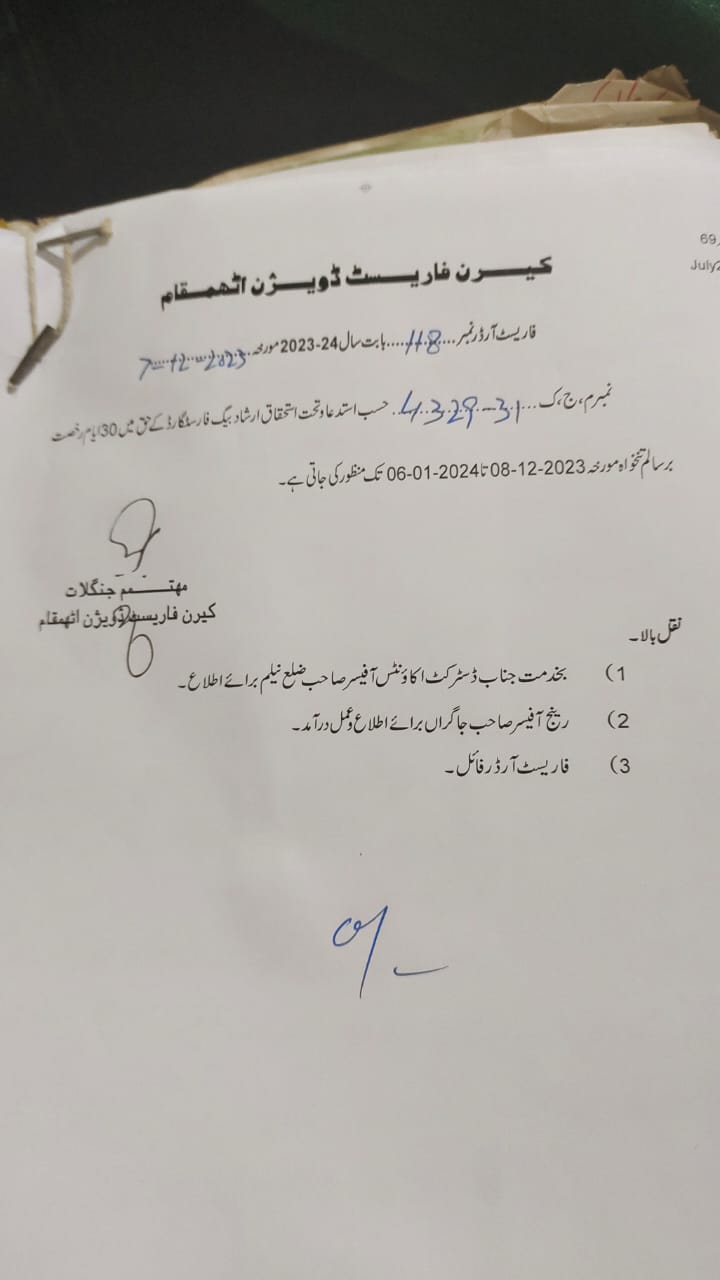 69
July2
کیرن فاریسٹ ڈویژن اٹھمقام
فاریسٹ آرڈر نمبر....118....بابت سال 24-2023 مورخہ 7-12-2023
نمبر م، ج، ک ...4329-31... حسب استدعا و تحت استحقاق ارشاد بیگ فارسٹگارڈ کے حق میں 30 ایام رخصت
بر سالم تنخواہ مورخہ 08-12-2023 تا 06-01-2024 تک منظور کی جاتی ہے۔
مہتمم جنگلات
کیرن فاریسٹ ڈویژن اٹھمقام
نقل بالا۔
1) بخدمت جناب ڈسٹرکٹ اکاؤنٹس آفیسر صاحب ضلع نیلم برائے اطلاع۔
2) رینج آفیسر صاحب جاگراں برائے اطلاع و عمل درآمد۔
3) فاریسٹ آرڈر فائل۔